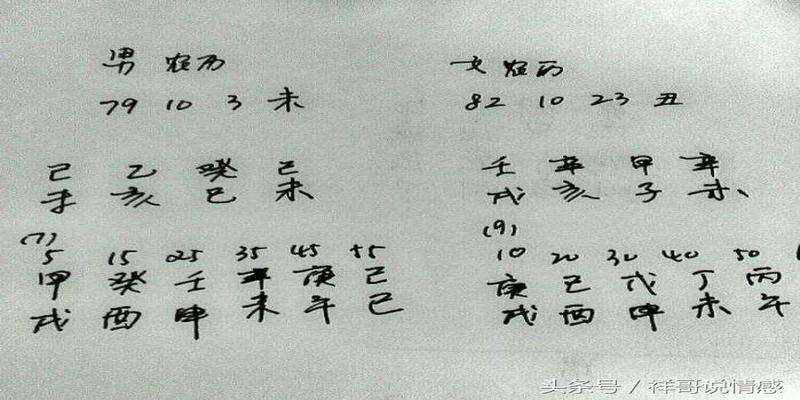 男 农历
79 10 3 未
己 乙 癸 己
未 亥 巳 未
(7)
5 15 25 35 45 55
甲 癸 壬 辛 庚 己
戌 酉 申 未 午 巳
女 农历
82 10 23 丑
壬 辛 甲 辛
戌 亥 子 未、
(9)
10 20 30 40 50
庚 己 戊 丁 丙
戌 酉 申 未 午
头条号 / 祥哥说情感